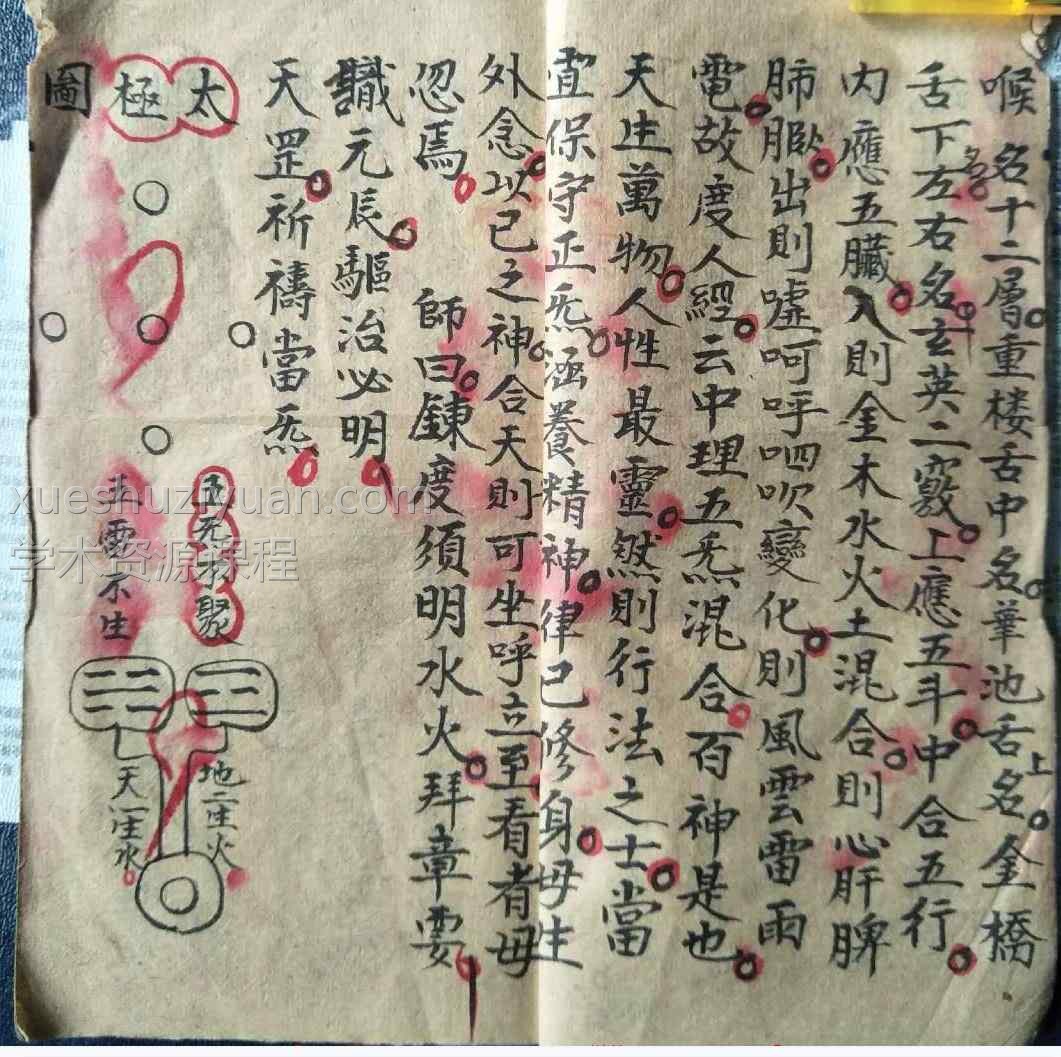 喉名十二層重楼舌中名華池舌上名金橋
舌下左右名玄英二竅上應五斗中合五行
内應五臟入則金木水火土混合則心肝脾
肺出則噓呵呼呬吹變化則風雲雷雨
電故度人經云中理五炁混合百神是也
天生萬物人性最靈然則行法之士當
宜保守正炁涵養精神律己修身毋生
外念以已之神合天則可坐呼立至看者毋
忽焉 師曰鍊度須明水火拜章要
識元辰驅治必明
天罡祈禱當炁
太極
圖
五炁不聚
五雷不生
地二生火
天一生水
xueshuziyuan.com
学术资源课程